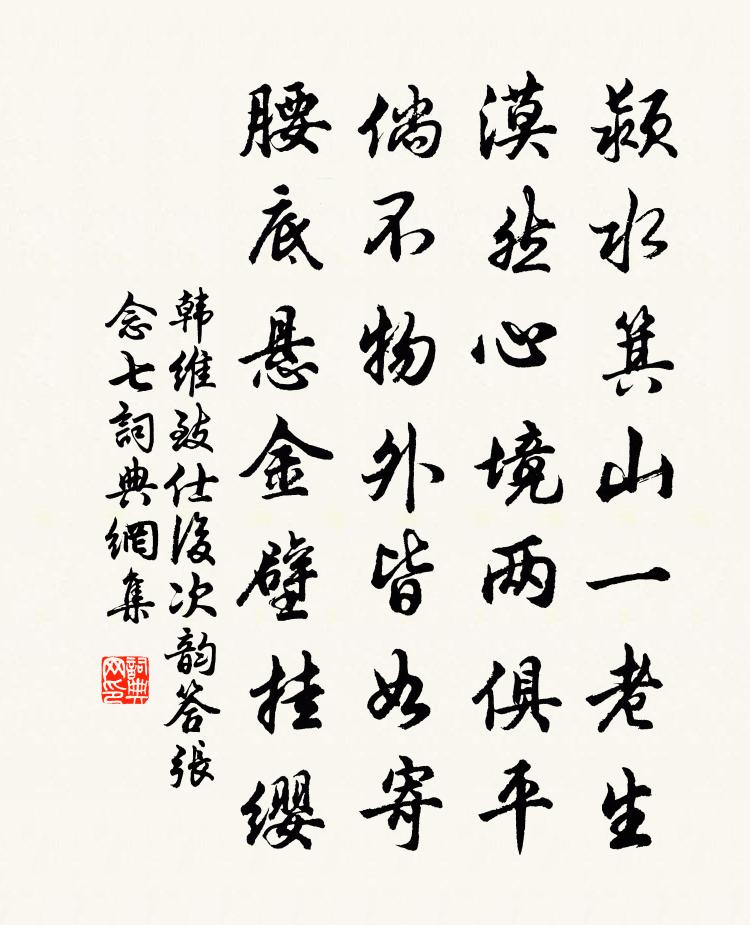 颍水箕山一老生
漠然心境两俱平
倘不物外皆如寄
腰底悬金壁挂缨
韩维致仕後次韵答張
念七詞典網集
詞典网印